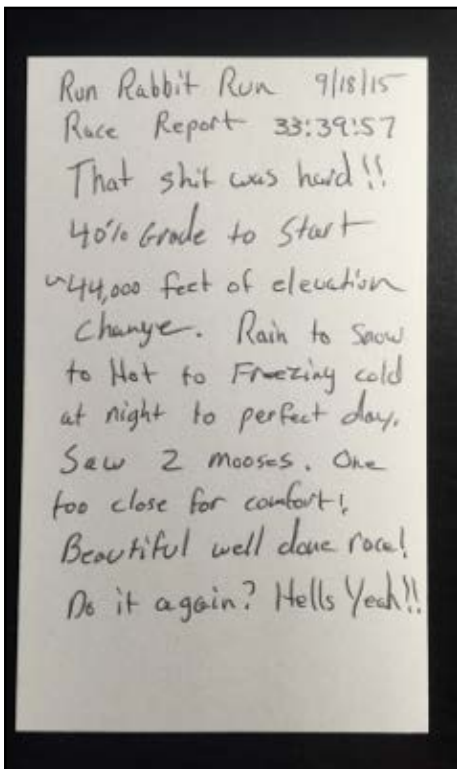 Run Rabbit Run 9/18/15
Race Report 33:39:57
That shit was hard!!
40% Grade to Start
~44,000 feet of elevation
change. Rain to Snow
to Hot to Freezing cold
at night to perfect day.
Saw 2 mooses. One
too close for comfort!
Beautiful well done race!
Do it again? Hells Yeah!!